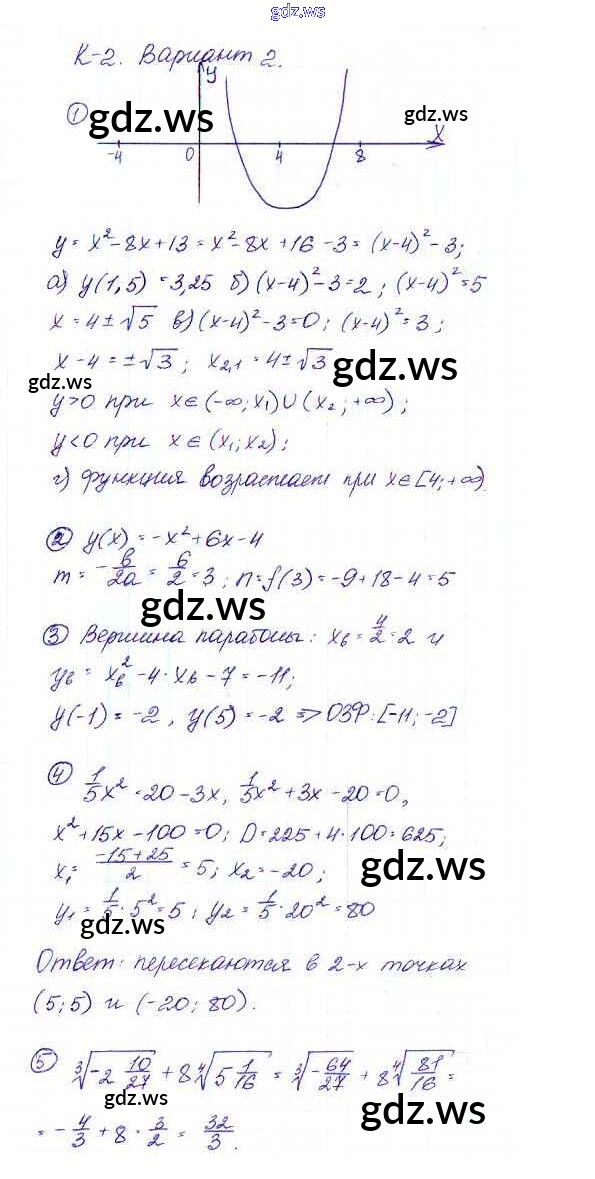 gdz.ws
К-2. Вариант 2.
y
① gdz.ws gdz.ws
x
-4 0 4 8
y = x² - 8x + 13 = x² - 8x + 16 - 3 = (x-4)² - 3;
а) y(1,5) = 3,25 б) (x-4)² - 3 = 2; (x-4)² = 5
x = 4 ± √5 в) (x-4)² - 3 = 0; (x-4)² = 3;
x - 4 = ±√3; x₂,₁ = 4 ± √3 gdz.ws
gdz.ws
y > 0 при x ∈ (-∞; x₁) ∪ (x₂; +∞);
y < 0 при x ∈ (x₁; x₂);
г) функция возрастает при x ∈ [4; +∞)
② y(x) = -x² + 6x - 4
m = -b/2a = 6/2 = 3; n = f(3) = -9 + 18 - 4 = 5
gdz.ws
③ Вершина параболы: xв = 4/2 = 2 и
yв = xв² - 4·xв - 7 = -11;
y(-1) = -2, y(5) = -2 => ОЗФ: [-11; -2]
④ 1/5x² = 20 - 3x, 1/5x² + 3x - 20 = 0,
x² + 15x - 100 = 0; D = 225 + 4·100 = 625;
x₁ = (-15 + 25)/2 = 5; x₂ = -20; gdz.ws
y₁ = 1/5·5² = 5; y₂ = 1/5·20² = 80
gdz.ws
Ответ: пересекаются в 2-х точках
(5; 5) и (-20; 80).
⑤ ∛(-2 10/27) + 8∜(5 1/16) = ∛(-64/27) + 8∜(81/16) =
gdz.ws gdz.ws
= -4/3 + 8·3/2 = 32/3.